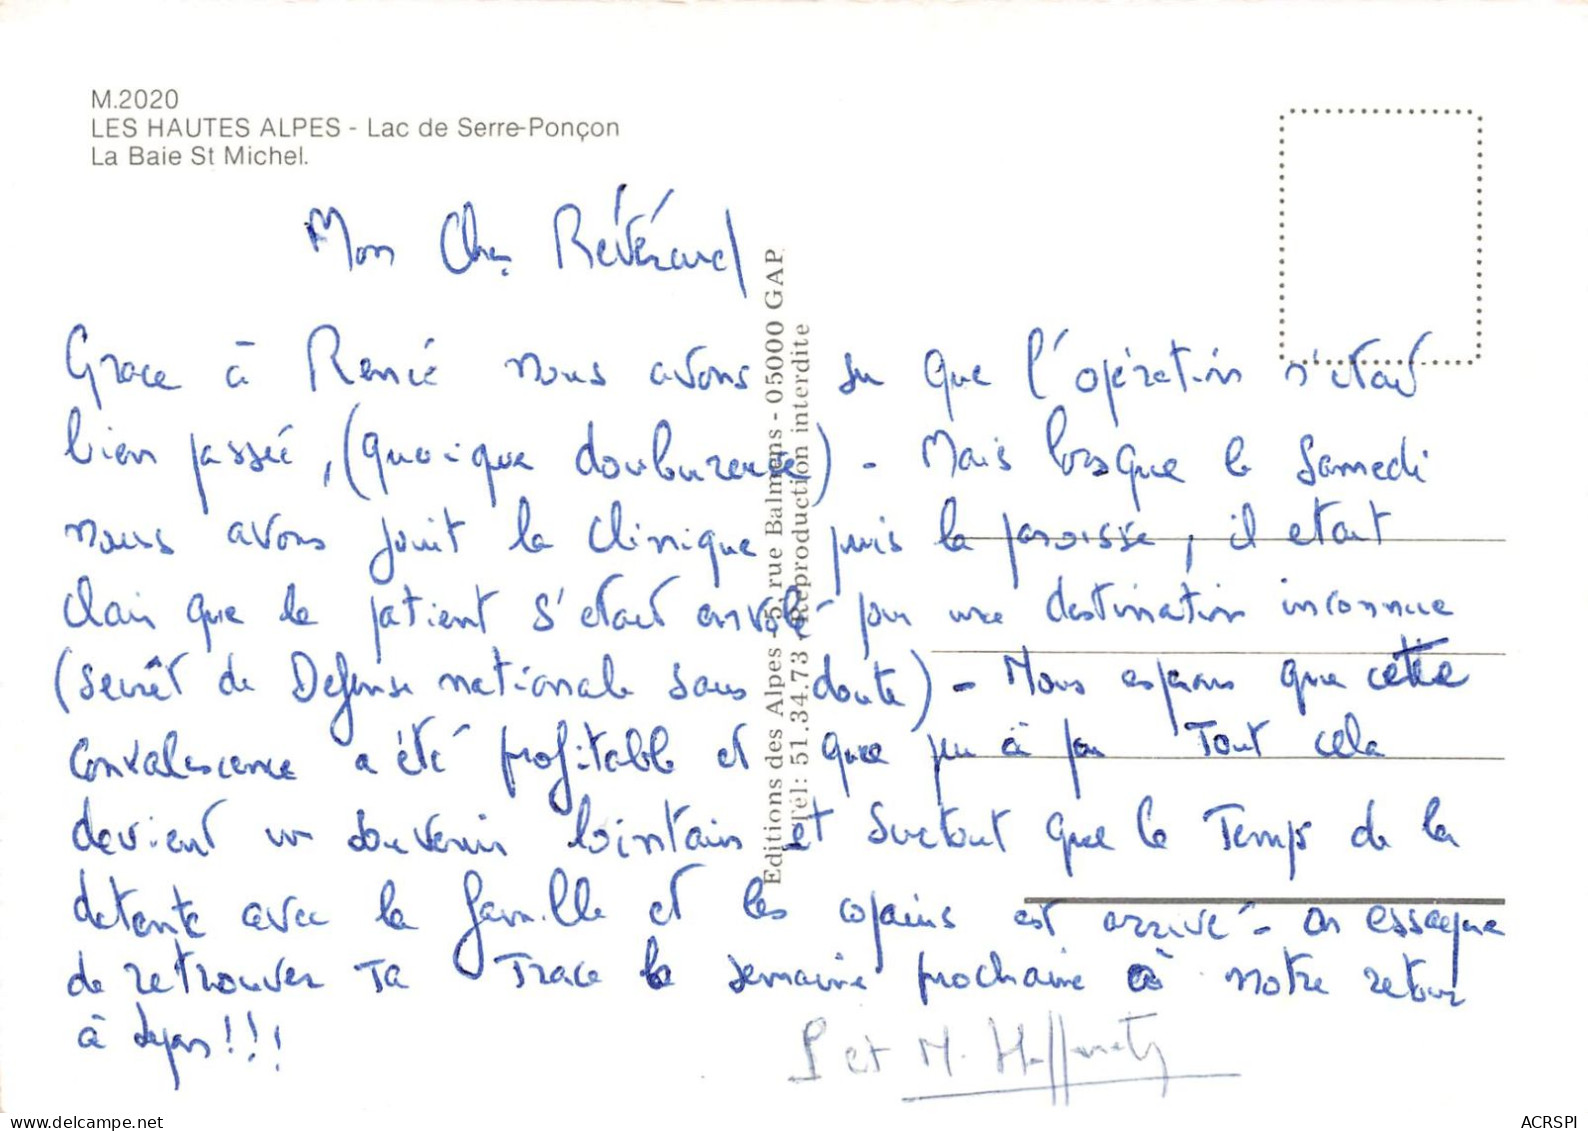 M.2020
LES HAUTES ALPES - Lac de Serre-Ponçon
La Baie St Michel.
Mon Cher Révérend
Grace à René nous avons su que l'opération s'était
bien passée, (quoique douloureuse) - Mais lorsque le Samedi
nous avons joint la clinique puis la paroisse, il etait
clair que le patient s'etait envolé pour une destination inconnue
(secrêt de Défense nationale sans doute) - Nous espérons que cette
convalescence a été profitable et que peu à peu Tout cela
devient un souvenir lointain et surtout que le Temps de la
detente avec la famille et les copains est arrivé - on essayera
de retrouver Ta Trace la semaine prochaine à notre retour
à Lyon!!!
et M.
Editions des Alpes - 5, rue Balmens - 05000 GAP
Tél: 51.34.73 - Reproduction interdite
ACRSPI